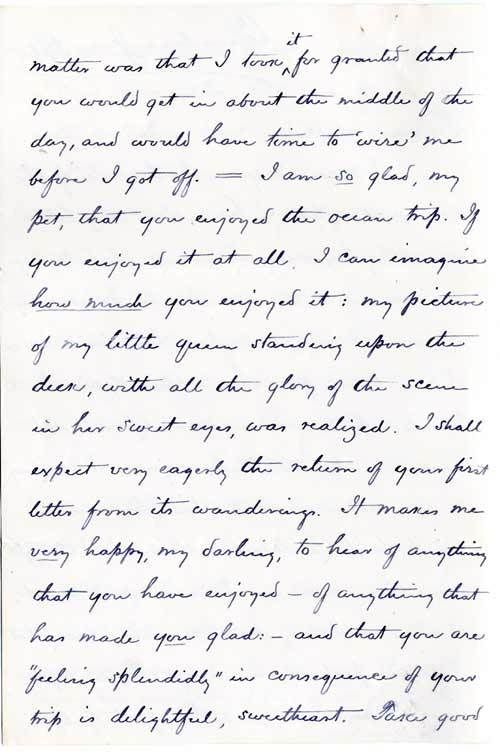 matter was that I took it for granted that
you would get in about the middle of the
day, and would have time to 'wire' me
before I got off. = I am so glad, my
pet, that you enjoyed the ocean trip. If
you enjoyed it at all, I can imagine
how much you enjoyed it: my picture
of my little queen standing upon the
deck, with all the glory of the scene
in her sweet eyes, was realized. I shall
expect very eagerly the return of your first
letter from its wanderings. It makes me
very happy, my darling, to hear of anything
that you have enjoyed – of anything that
has made you glad: – and that you are
"feeling splendidly" in consequence of your
trip is delightful, sweetheart. Take good